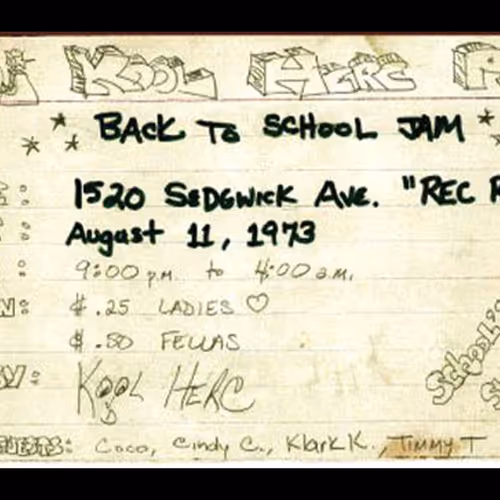 KOOL HERC
BACK TO SCHOOL JAM
1520 SEDGWICK AVE. "REC
August 11, 1973
9:00 p.m. to 4:00 a.m.
$ .25 LADIES ♡
$ .50 FELLAS
KOOL HERC
Coco, Cindy C., Klark K., TIMMY T
School's